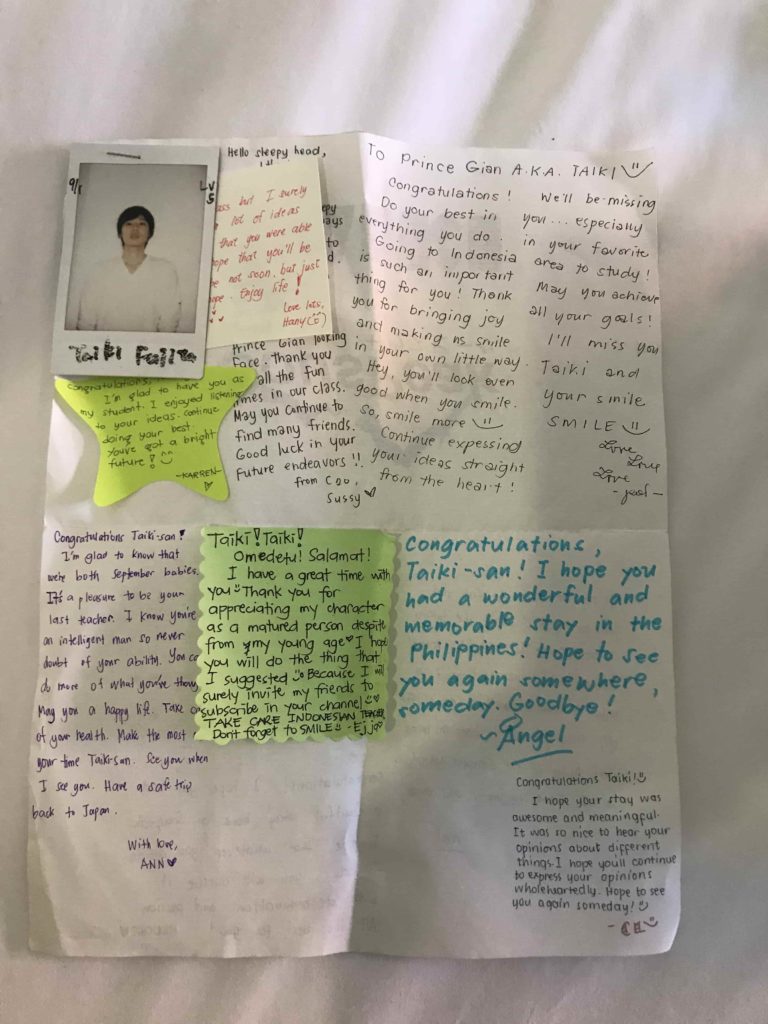 9/1
Lv
5
Taiki
Hello sleepy head,
ass but I surely
lot of ideas
that you were able
hope that you'll be
be not soon, but just
Enjoy life!
Love lots,
Hany
Prince Gian looking
Face. Thank you
all the fun
times in our class.
May you continue to
find many friends.
Good luck in your
Future endeavors !!
from
Sussy
Congratulations,
I'm glad to have you as
my student. I enjoyed listening
to your ideas. Continue
doing your best.
You've got a bright
future!
-KARREN-
To Prince Gian A.K.A. TAIKI
Congratulations!
Do your best in
everything you do.
Going to Indonesia
is such an important
thing for you! Thank
you for bringing joy
and making us smile
in your own little way.
Hey, you'll look even
good when you smile.
So, smile more
Continue expessing
your ideas straight
from the heart!
We'll be missing
you... especially
in your favorite
area to study!
May you achieve
all your goals!
I'll miss you
Taiki and
your smile
SMILE
Love
Love
Love
Congratulations Taiki-san!
I'm glad to know that
we're both September babies.
It's a pleasure to be your
last teacher. I know you're
an intelligent man so never
doubt of your ability. You can
do more of what you've
May you a happy life. Take
of your health. Make the most
your time Taiki-san. See you when
I see you. Have a safe trip
back to Japan.
With love,
ANN
Taiki! Taiki!
Omedetu! Salamat!
I have a great time with
you Thank you for
appreciating my character
as a matured person despite
from my young age I hope
you will do the thing that
I suggested Because I will
surely invite my friends to
subscribe in your channel
TAKE CARE INDONESIAN TEACHER
Don't forget to SMILE - Ejja
Congratulations,
Taiki-san! I hope you
had a wonderful and
memorable stay in the
Philippines! Hope to see
you again somewhere,
someday. Goodbye!
~Angel
Congratulations Taiki!
I hope your stay was
awesome and meaningful.
It was so nice to hear your
opinions about different
things. I hope you'll continue
to express your opinions
wholeheartedly. Hope to see
you again someday!